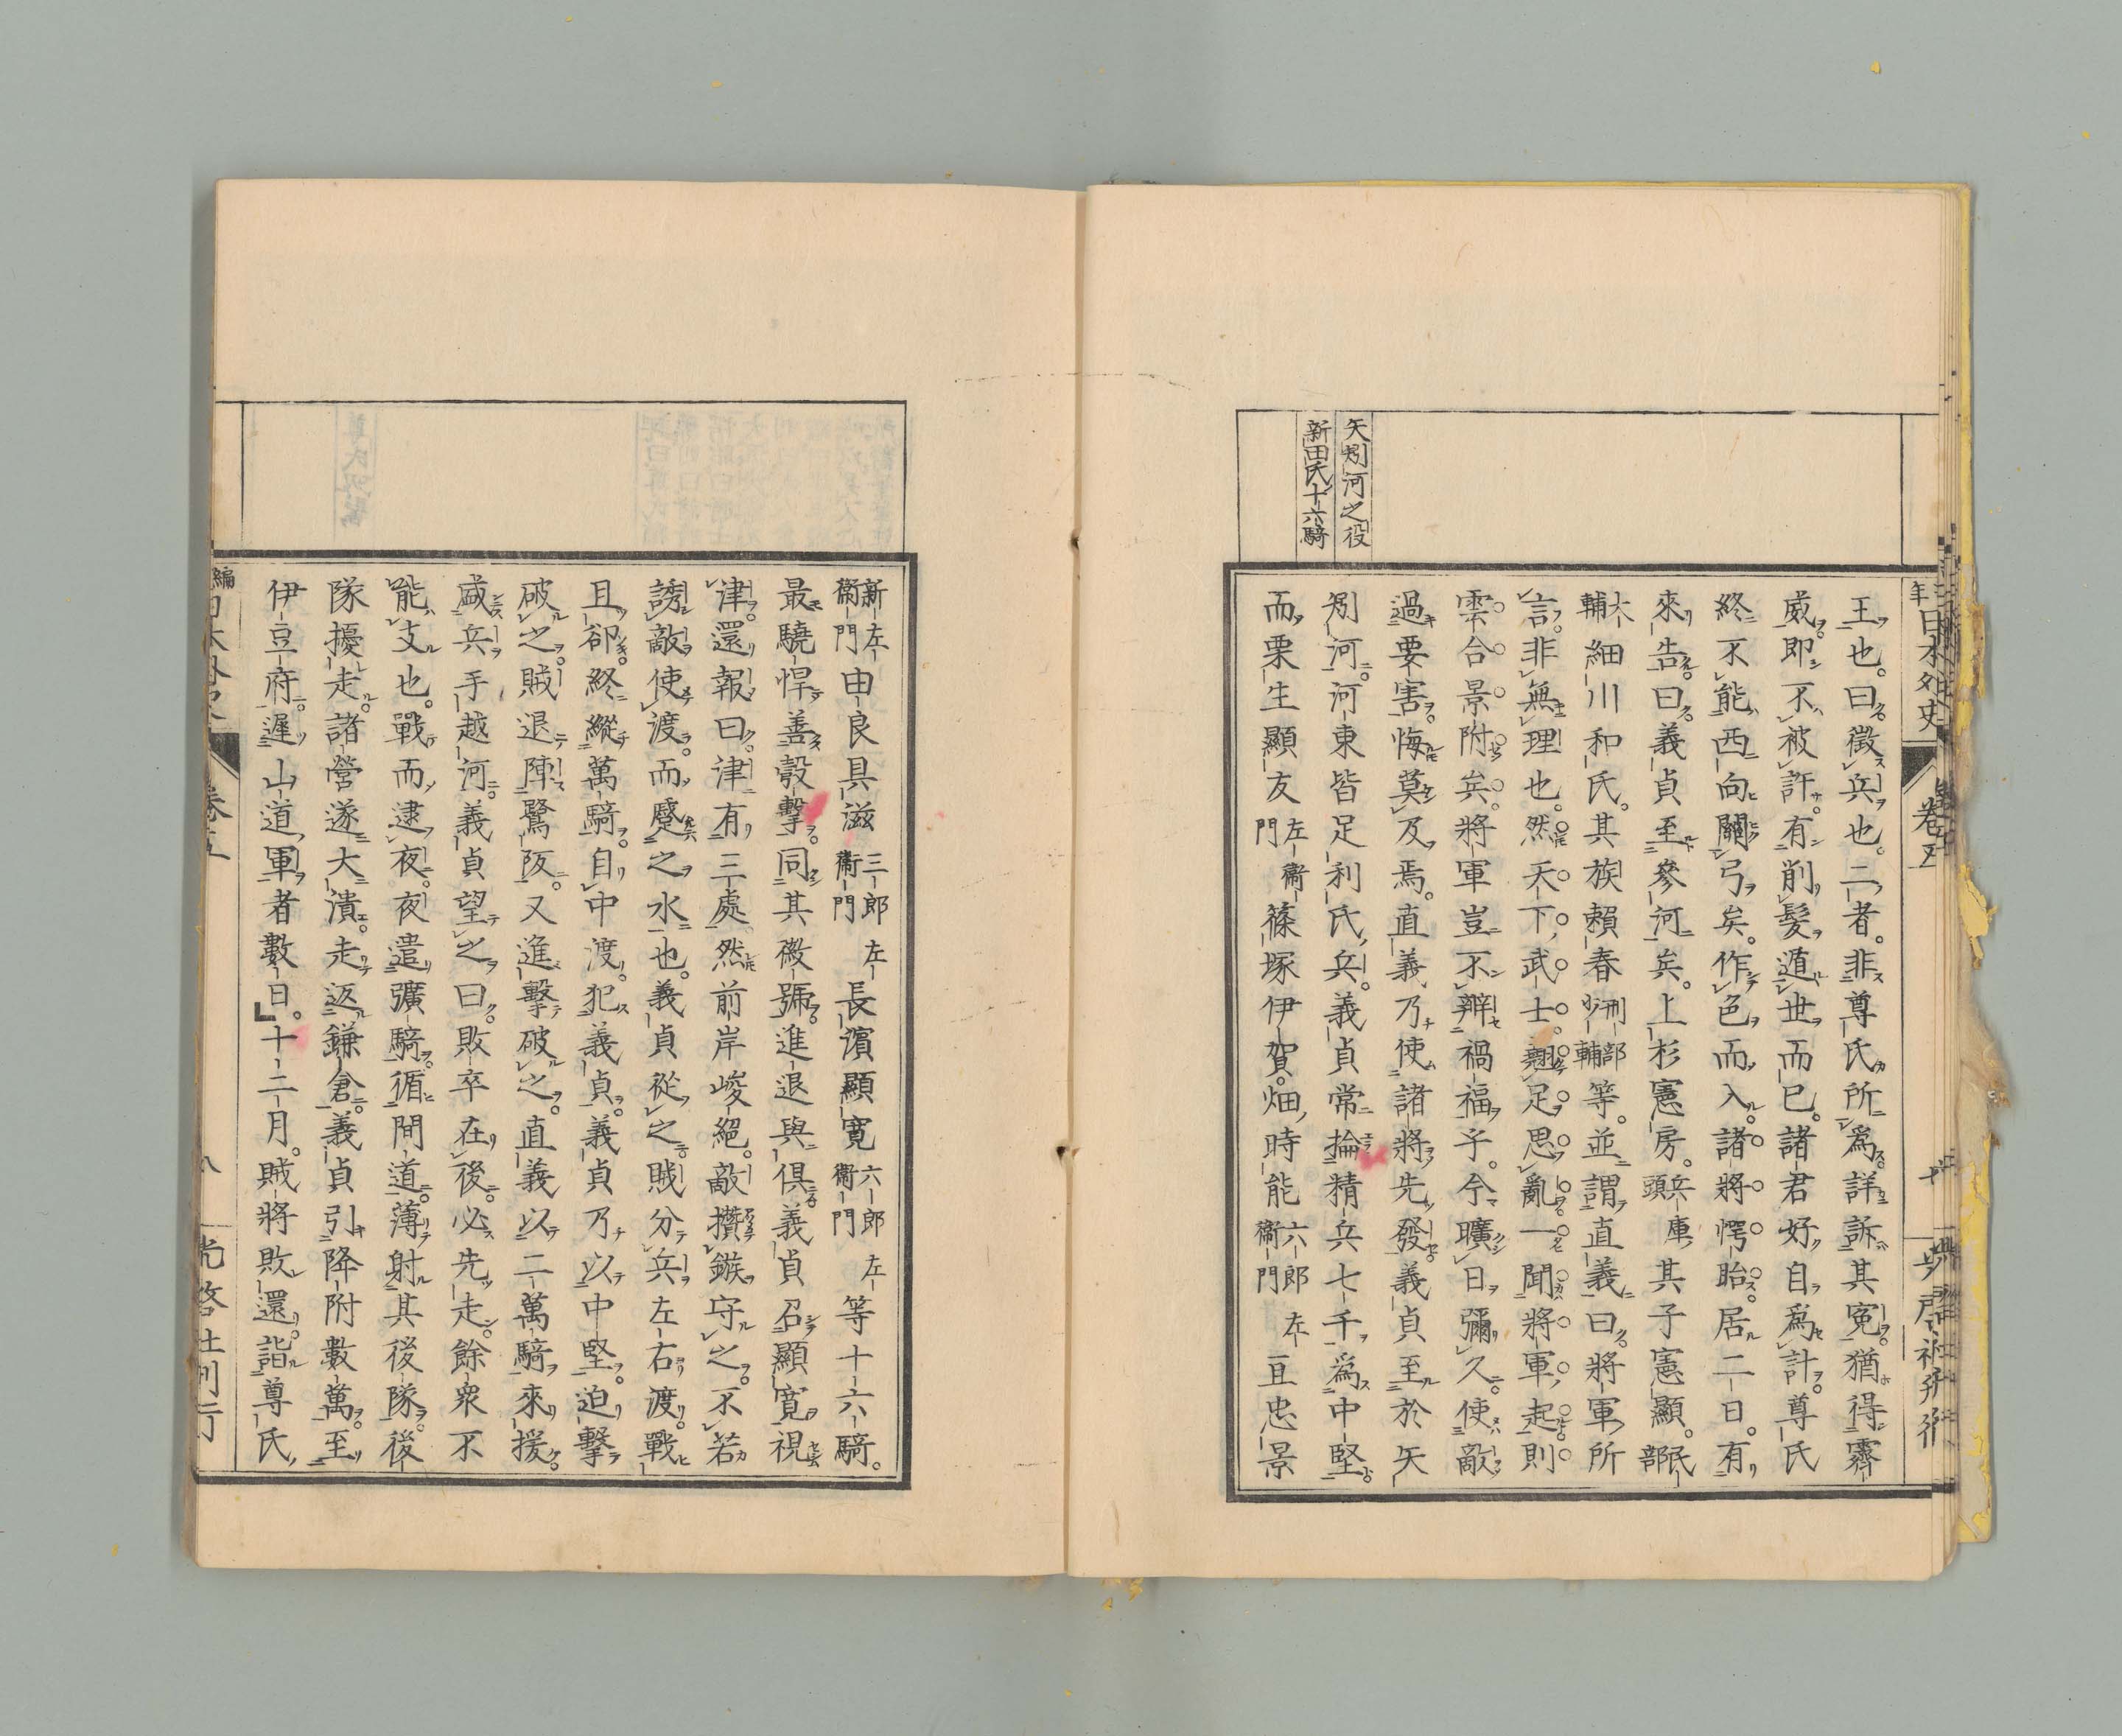 矢矧河之役
新田氏十六騎
王也。曰徵兵也。二者。非尊氏所爲。詳訴其冤。猶得霽
威。即不被許。有削髮遁世而已。諸君好自爲計。尊氏
終不能西向關弓矣。作色而入。諸將愕眙。居二日。有
來告。曰義貞至參河矣。上杉憲房。兵庫頭其子憲顯。民部
大輔細川和氏。其族賴春刑部少輔等。並謂直義曰。將軍所
言。非無理也。然天下武士。翹足思亂。一聞將軍起。則
雲合景附矣。將軍豈不辨禍福乎。今曠日彌久。使敵
過要害。悔莫及焉。直義乃使諸將先發。義貞至於矢
矧河。河東皆足利氏兵。義貞常掄精兵七千爲中堅。
而栗生顯友左衞門篠塚伊賀。畑時能六郎左衞門亘忠景
新左衞門由良具滋三郎左衞門長濱顯寛六郎左衞門等十六騎。
最驍悍善彀擊。同其徽號。進退與俱。義貞召顯寛視
津。還報曰。津有三處。然前岸峻絕。敵攢鏃守之。不若
誘敵使渡。而蹙之水也。義貞從之。賊分兵左右渡。戰
且卻。終縱萬騎。自中渡。犯義貞。義貞乃以中堅。迫擊
破之。賊退陣鷺阪。又進擊破之。直義以二萬騎來援。
盛兵手越河。義貞望之曰。敗卒在後。必先走。餘衆不
能支也。戰而逮夜。夜遣彍騎。循間道。薄射其後隊。後
隊擾走。諸營遂大潰。走返鎌倉。義貞引降附數萬。至
伊豆府。遲山道軍者數日。」十二月。賊將敗還。詣尊氏